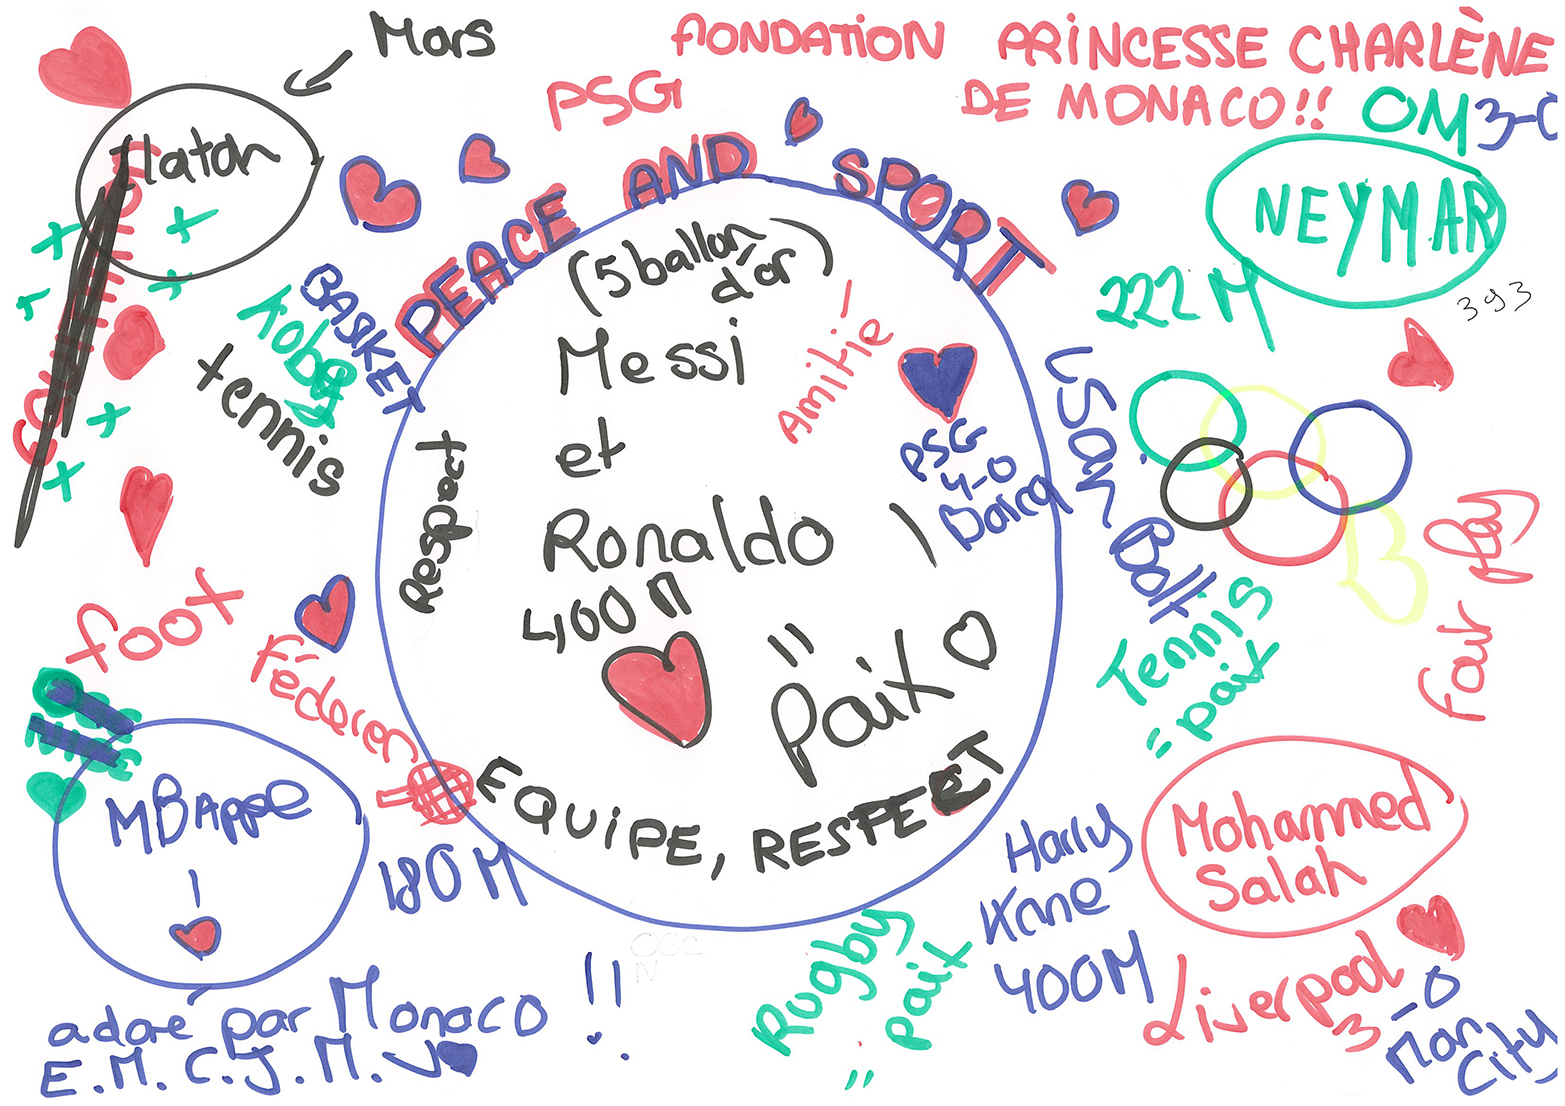 Mars
FONDATION PRINCESSE CHARLÈNE
DE MONACO!!
PSG
OM 3-0
latan
NEYMAR
222 M
393
PEACE AND SPORT
BASKET
Kobe
tennis
(5 ballon
d'or)
Messi
et
Ronaldo
400 M
=
Paix
Amitié
PSG
4-0
Barca
Respect
EQUIPE, RESPECT
USain Bolt
Fair play
Tennis
= paix
foot
Féderer
MBAppe
180 M
adoré par Monaco !!
E.M.C.J.M.V
OGC
N
Rugby
= paix
Harry
Kane
400M
Mohammed
Salah
Liverpool
3-0
Man
City